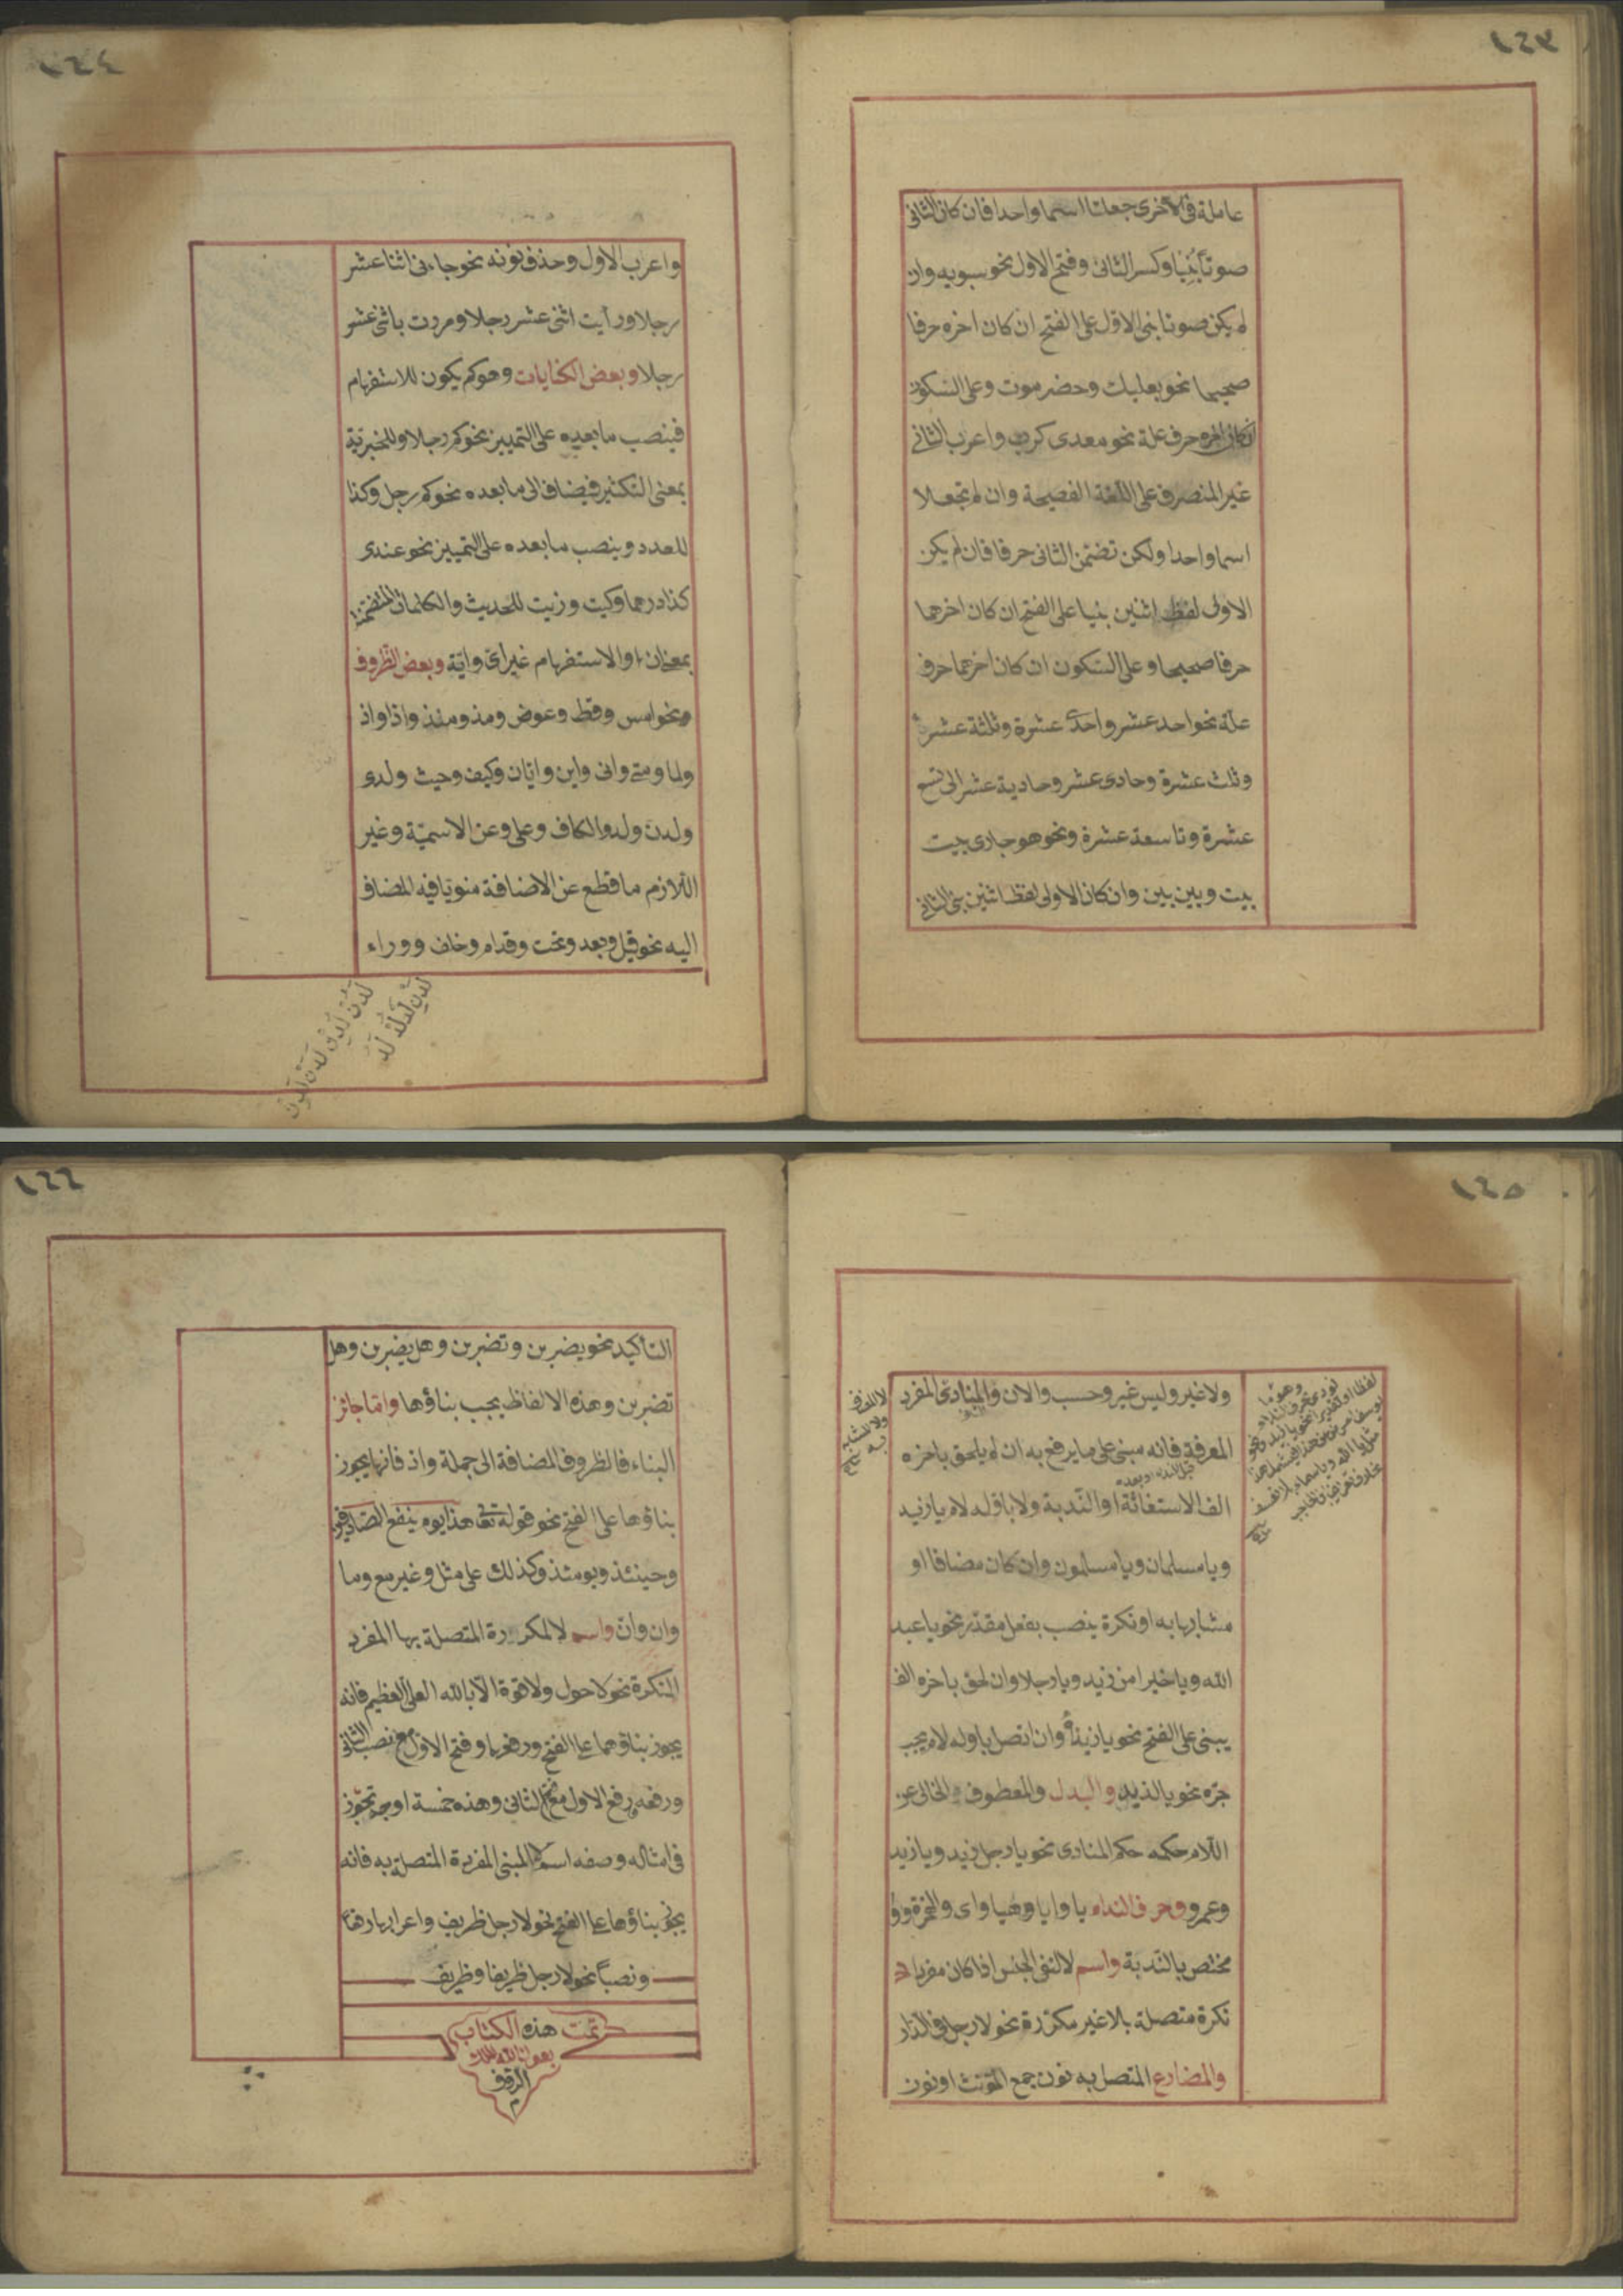 ١٤٣
عاملة في الاخرى جعلتا اسما واحدا فان كان الثاني
صوتا بنيا وكسر الثاني وفتح الاول نحو سيبويه وان
لم يكن صوتا بني الاول على الفتح ان كان اخره حرفا
صحيحا نحو بعلبك وحضرموت وعلى السكون
ان كان اخره حرف علة نحو معدي كرب واعرب الثاني
غير المنصرف على اللغة الفصيحة وان لم تجعلا
اسما واحدا ولكن تضمن الثاني حرفا فان لم يكن
الاولى لفظ اثنين بنيا على الفتح ان كان اخرهما
حرفا صحيحا وعلى السكون ان كان اخرهما حرف
علة نحو احد عشر واحدى عشرة وثلثة عشر
وثلث عشرة وحادى عشر وحادية عشر الى تسع
عشرة وتاسعة عشرة ونحو هو جارى بيت
بيت وبين بين وان كان الاولى لفظ اثنين بني الثاني
١٤٤
واعرب الاول وحذف نونه نحو جاءني اثنا عشر
رجلا ورأيت اثنى عشر رجلا ومررت باثنى عشر
رجلا وبعض الكنايات وهو كم يكون للاستفهام
فينصب ما بعده على التمييز نحو كم رجلا وللخبرية
بمعنى التكثير فيضاف الى ما بعده نحو كم رجل وكذا
للعدد وينصب ما بعده على التمييز نحو عندى
كذا درهما وكيت وزيت للحديث والكلمات المتضمنة
بمعنى ان او الاستفهام غير اى واية وبعض الظروف
نحو امس وقط وعوض ومذ ومنذ واذا واذ
ولما ومتى وانى واين وايان وكيف وحيث ولدى
ولدن ولد والكاف وعلى وعن الاسمية وغير
اللازم ما قطع عن الاضافة منويا فيه المضاف
اليه نحو قبل وبعد وتحت وقدام وخلف ووراء
١٤٥
ولا غير وليس غير وحسب والان والمنادى المفرد
المعرفة فانه مبنى على ما يرفع به ان لم يلحق باخره
الف الاستغاثة او الندبة ولا باوله لام يا زيد
ويا مسلمان ويا مسلمون وان كان مضافا او
مشابها به او نكرة ينصب بفعل مقدر نحو يا عبد
الله ويا خيرا من زيد ويا رجلا وان لحق باخره الف
يبنى على الفتح نحو يا زيداه وان اتصل باوله لام يجب
جره نحو يا لزيد والبدل والمعطوف الخالى عن
اللام حكمه حكم المنادى نحو يا رجل زيد ويا زيد
وعمرو وحرف النداء يا وايا وهيا واى والهمزة ووا
مختص بالندبة واسم لا لنفى الجنس اذا كان مفردا
نكرة متصلة بلا غير مكررة نحو لا رجل فى الدار
والمضارع المتصل به نون جمع المؤنث او نون
١٤٦
التأكيد نحو يضربن وتضربن وهل يضربن وهل
تضربن وهذه الالفاظ يجب بناؤها واما جائز
البناء فالظروف المضافة الى جملة واذ فانها يجوز
بناؤها على الفتح نحو قوله تعالى هذا يوم ينفع الصادقين
وحينئذ ويومئذ وكذلك على مثل وغير مع وما
وان وان واسم لا المكررة المتصلة بها المفرد
النكرة نحو لا حول ولا قوة الا بالله العلى العظيم فانه
يجوز بناؤهما على الفتح ورفعهما وفتح الاول مع نصب الثانى
ورفعه ورفع الاول مع فتح الثانى وهذه خمسة اوجه تجوز
فى امثاله وصفه اسم لا المبنى المفردة المتصلة به فانه
يجوز بناؤها على الفتح نحو لا رجل ظريف واعرابها رفعا
ونصبا نحو لا رجل ظريفا وظريف
تمت هذه الكتاب
بعون الله الملك